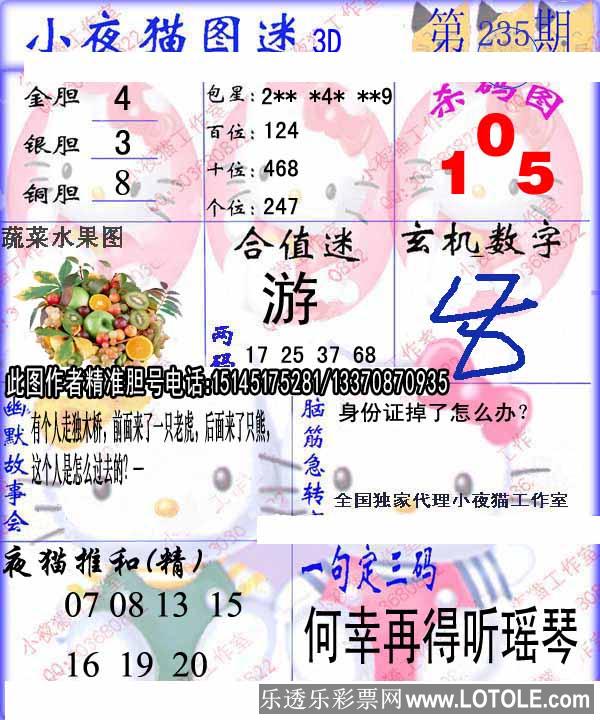 小夜猫图迷 3D 第235期
金胆 4
银胆 3
铜胆 8
包星: 2** *4* **9
百位: 124
十位: 468
个位: 247
东码图
1 0 5
蔬菜水果图
合值迷
游
两码 17 25 37 68
玄机数字
此图作者精准胆号电话:15145175281/13370870935
幽默故事会
有个人走独木桥，前面来了一只老虎，后面来了只熊，
这个人是怎么过去的？一
脑筋急转
身份证掉了怎么办？
全国独家代理小夜猫工作室
夜猫推和(精)
07 08 13 15
16 19 20
一句定三码
何幸再得听瑶琴
乐透乐彩票网 www.LOTOLE.com